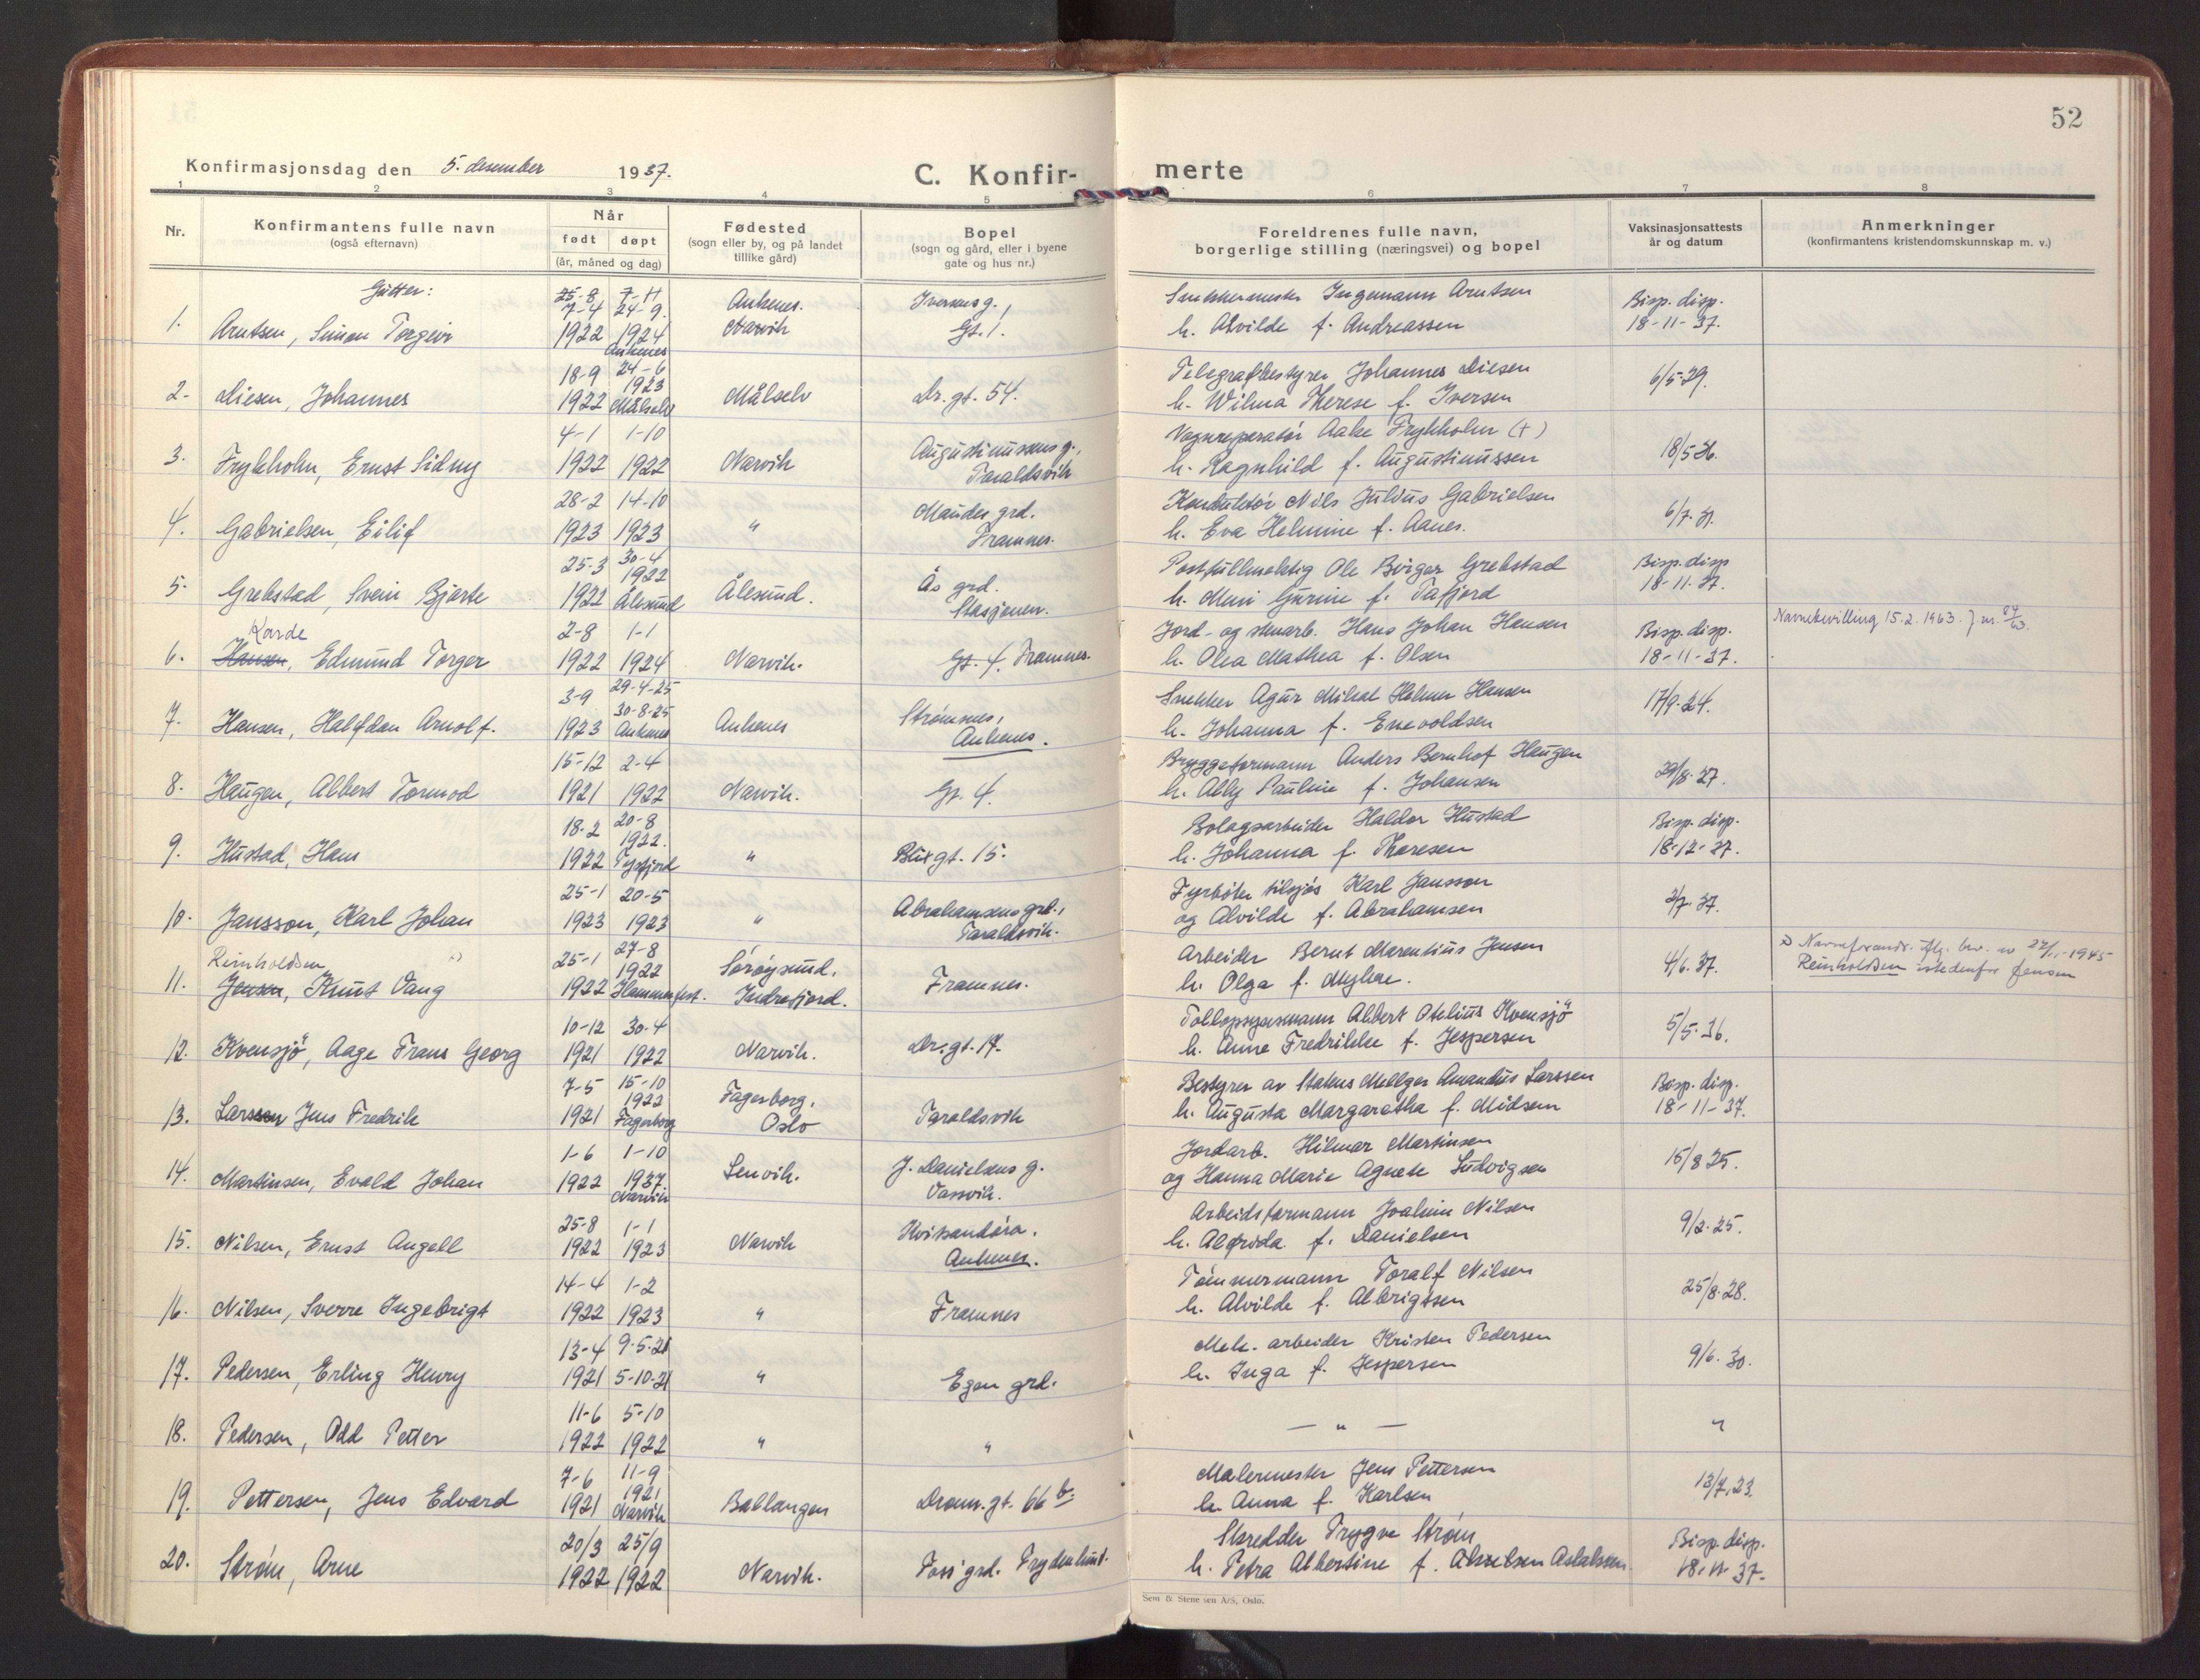 52
Konfirmasjonsdag den 5. desember 1937.
C. Konfir-merte
1 2 3 4 5 6 7 8
Nr. Konfirmantens fulle navn (også efternavn) Når født døpt (år, måned og dag) Fødested (sogn eller by, og på landet tillike gård) Bopel (sogn og gård, eller i byene gate og hus nr.) Foreldrenes fulle navn, borgerlige stilling (næringsvei) og bopel Vaksinasjonsattests år og datum Anmerkninger (konfirmantens kristendomskunnskap m. v.)
Gutter:
1. Arntsen, Simon Torgeir 25-8 7-4 1922 7-11 24-9. 1924 Ankenes Ankenes. Narvik Iversens g., Gt. 1. Snekkermester Ingemann Arntsen
h. Alvilde f. Andreassen Bisp. disp. 18-11-37.
2. Diesen, Johannes 18-9 1922 24-6 1923 Målselv Målselv Dr. gt. 54. Telegrafbestyrer Johannes Diesen
h. Wilma Therese f. Iversen 6/5-29.
3. Frykholm, Ernst Sidny 4-1 1922 1-10 1922 Narvik Augustinussens g., Taraldsvik Vognreparatør Aake Frykholm (+)
h. Ragnhild f. Augustinussen 18/5-36.
4. Gabrielsen, Eilif 28-2 1923 14-10 1923 " Maudes grd. Framnes. Konduktør Nils Julius Gabrielsen
h. Eva Helmine f. Aanes. 6/7-31.
5. Grebstad, Svein Bjarte 25-3 1922 30-4 1922 Ålesund Ålesund. Ås grd. Stasjonen. Postfullmektig Ole Birger Grebstad
h. Muri Gurine f. Tafjord Bisp. disp 18-11-37.
6. Korde Hansen, Edmund Torger 2-8 1922 1-1 1924 Narvik. Gt. 4. Framnes. Jord- og stenarb. Hans Johan Hansen
h. Olea Mathea f. Olsen Bisp. disp. 18-11-37. Navnebevilling 15.2.1963. J. nr. 84/63.
7. Hansen, Halfdan Arnolf. 3-9 1923 29-4-25 30-8-25 Ankenes Ankenes Strømsnes, Ankenes. Snekker Agur Mikal Helmer Hansen
h. Johanna f. Enevoldsen 17/9-24.
8. Haugen, Albert Tormod 15-12 1921 2-4 1922 Narvik. Gt. 4. Bryggeformann Anders Bernhof Haugen
h. Ally Pauline f. Johansen 29/8-27.
9. Hustad, Hans 18-2 1922 20-8 1922. Tysfjord " Blix gt. 15. Bolagsarbeider Haldor Hustad
h. Johanna f. Thoresen Bisp. disp. 18-12-37.
10. Jansson, Karl Johan 25-1 1923 20-5 1923 " Abrahamsens grd., Taraldsvik. Fyrbøter tilsjøs Karl Jansson
og Alvilde f. Abrahamsen 2/7-37.
11. Reinholdsen Jensen, Knut Vang 25-1 1922 27-8 1922 Hammerfest. Sørøysund. Indrefjord. Framnes. Arbeider Bernt Marentius Jensen
h. Olga f. Myhre. 4/6-37. x) Navneforandr. flg. bev. av 27/11-1945 Reinholdsen istedenfor Jensen
12. Kvensjö, Aage Frans Georg 10-12 1921 30-4 1922 Narvik. Dr. gt. 17. Tollopsynsmann Albert Otelius Kvensjö
h. Anne Fredrikke f. Jespersen 5/5-36.
13. Larssen Jens Fredrik 7-5 1921 15-10 1922 Fagerborg Fagerborg, Oslo Taraldsvik Bestyrer av Statens Mellager Amandus Larssen
h. Augusta Margaretha f. Midsem Bisp. disp. 18-11-37.
14. Martinsen, Evald Johan 1-6 1922 1-10 1937 Narvik Lenvik. J. Danielsens g. Vassvik. Jordarb. Hilmar Martinsen
og Hanna Marie Agnete Ludvigsen 15/8 25.
15. Nilsen, Ernst Angell 25-8 1922 1-1 1923 Narvik Kvitsandøra. Ankenes. Arbeidsformann Joakim Nilsen
h. Alfrida f. Danielsen 9/2-25.
16. Nilsen, Sverre Ingebrigt 14-4 1922 1-2 1923 " Framnes Tømmermann Toralf Nilsen
h. Alvilde f. Albrigtsen 25/8-28.
17. Pedersen, Erling Henry 13-4 1921 9-5-21 5-10-21 " Egen grd. Mek. arbeider Kristen Pedersen
h. Inga f. Jespersen 9/6-30.
18. Pedersen, Odd Petter 11-6 1922 5-10 1922 " " — " — "
19. Pettersen, Jens Edvard 7-6 1921 11-9 1921 Narvik Ballangen Dronn. gt. 66 b. Malermester Jens Pettersen
h. Anna f. Karlsen 13/7.23.
20. Strøm, Arne 20/3 1922 25/9 1922 Narvik. Foss' grd. Frydenlund. Skredder Trygve Strøm
h. Petra Albertine f. Aslaksen. Bisp. disp. 18-11-37.
Sem & Stenersen A/S, Oslo.